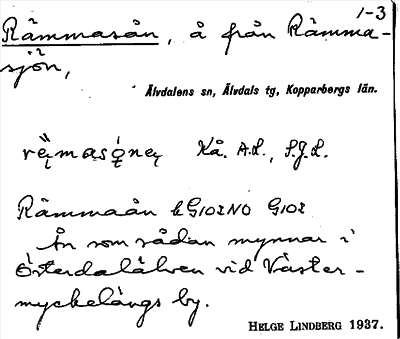 1-3
Råmmasån, å från Råmma-
sjön,
Älvdalens sn, Älvdals tg, Kopparbergs län.
Kå. A.L., S.J.L.
Råmmaån bG102NO G102
Ån som sådan mynnar i
Österdalälven vid Väster-
myckelängs by.
HELGE LINDBERG 1937.